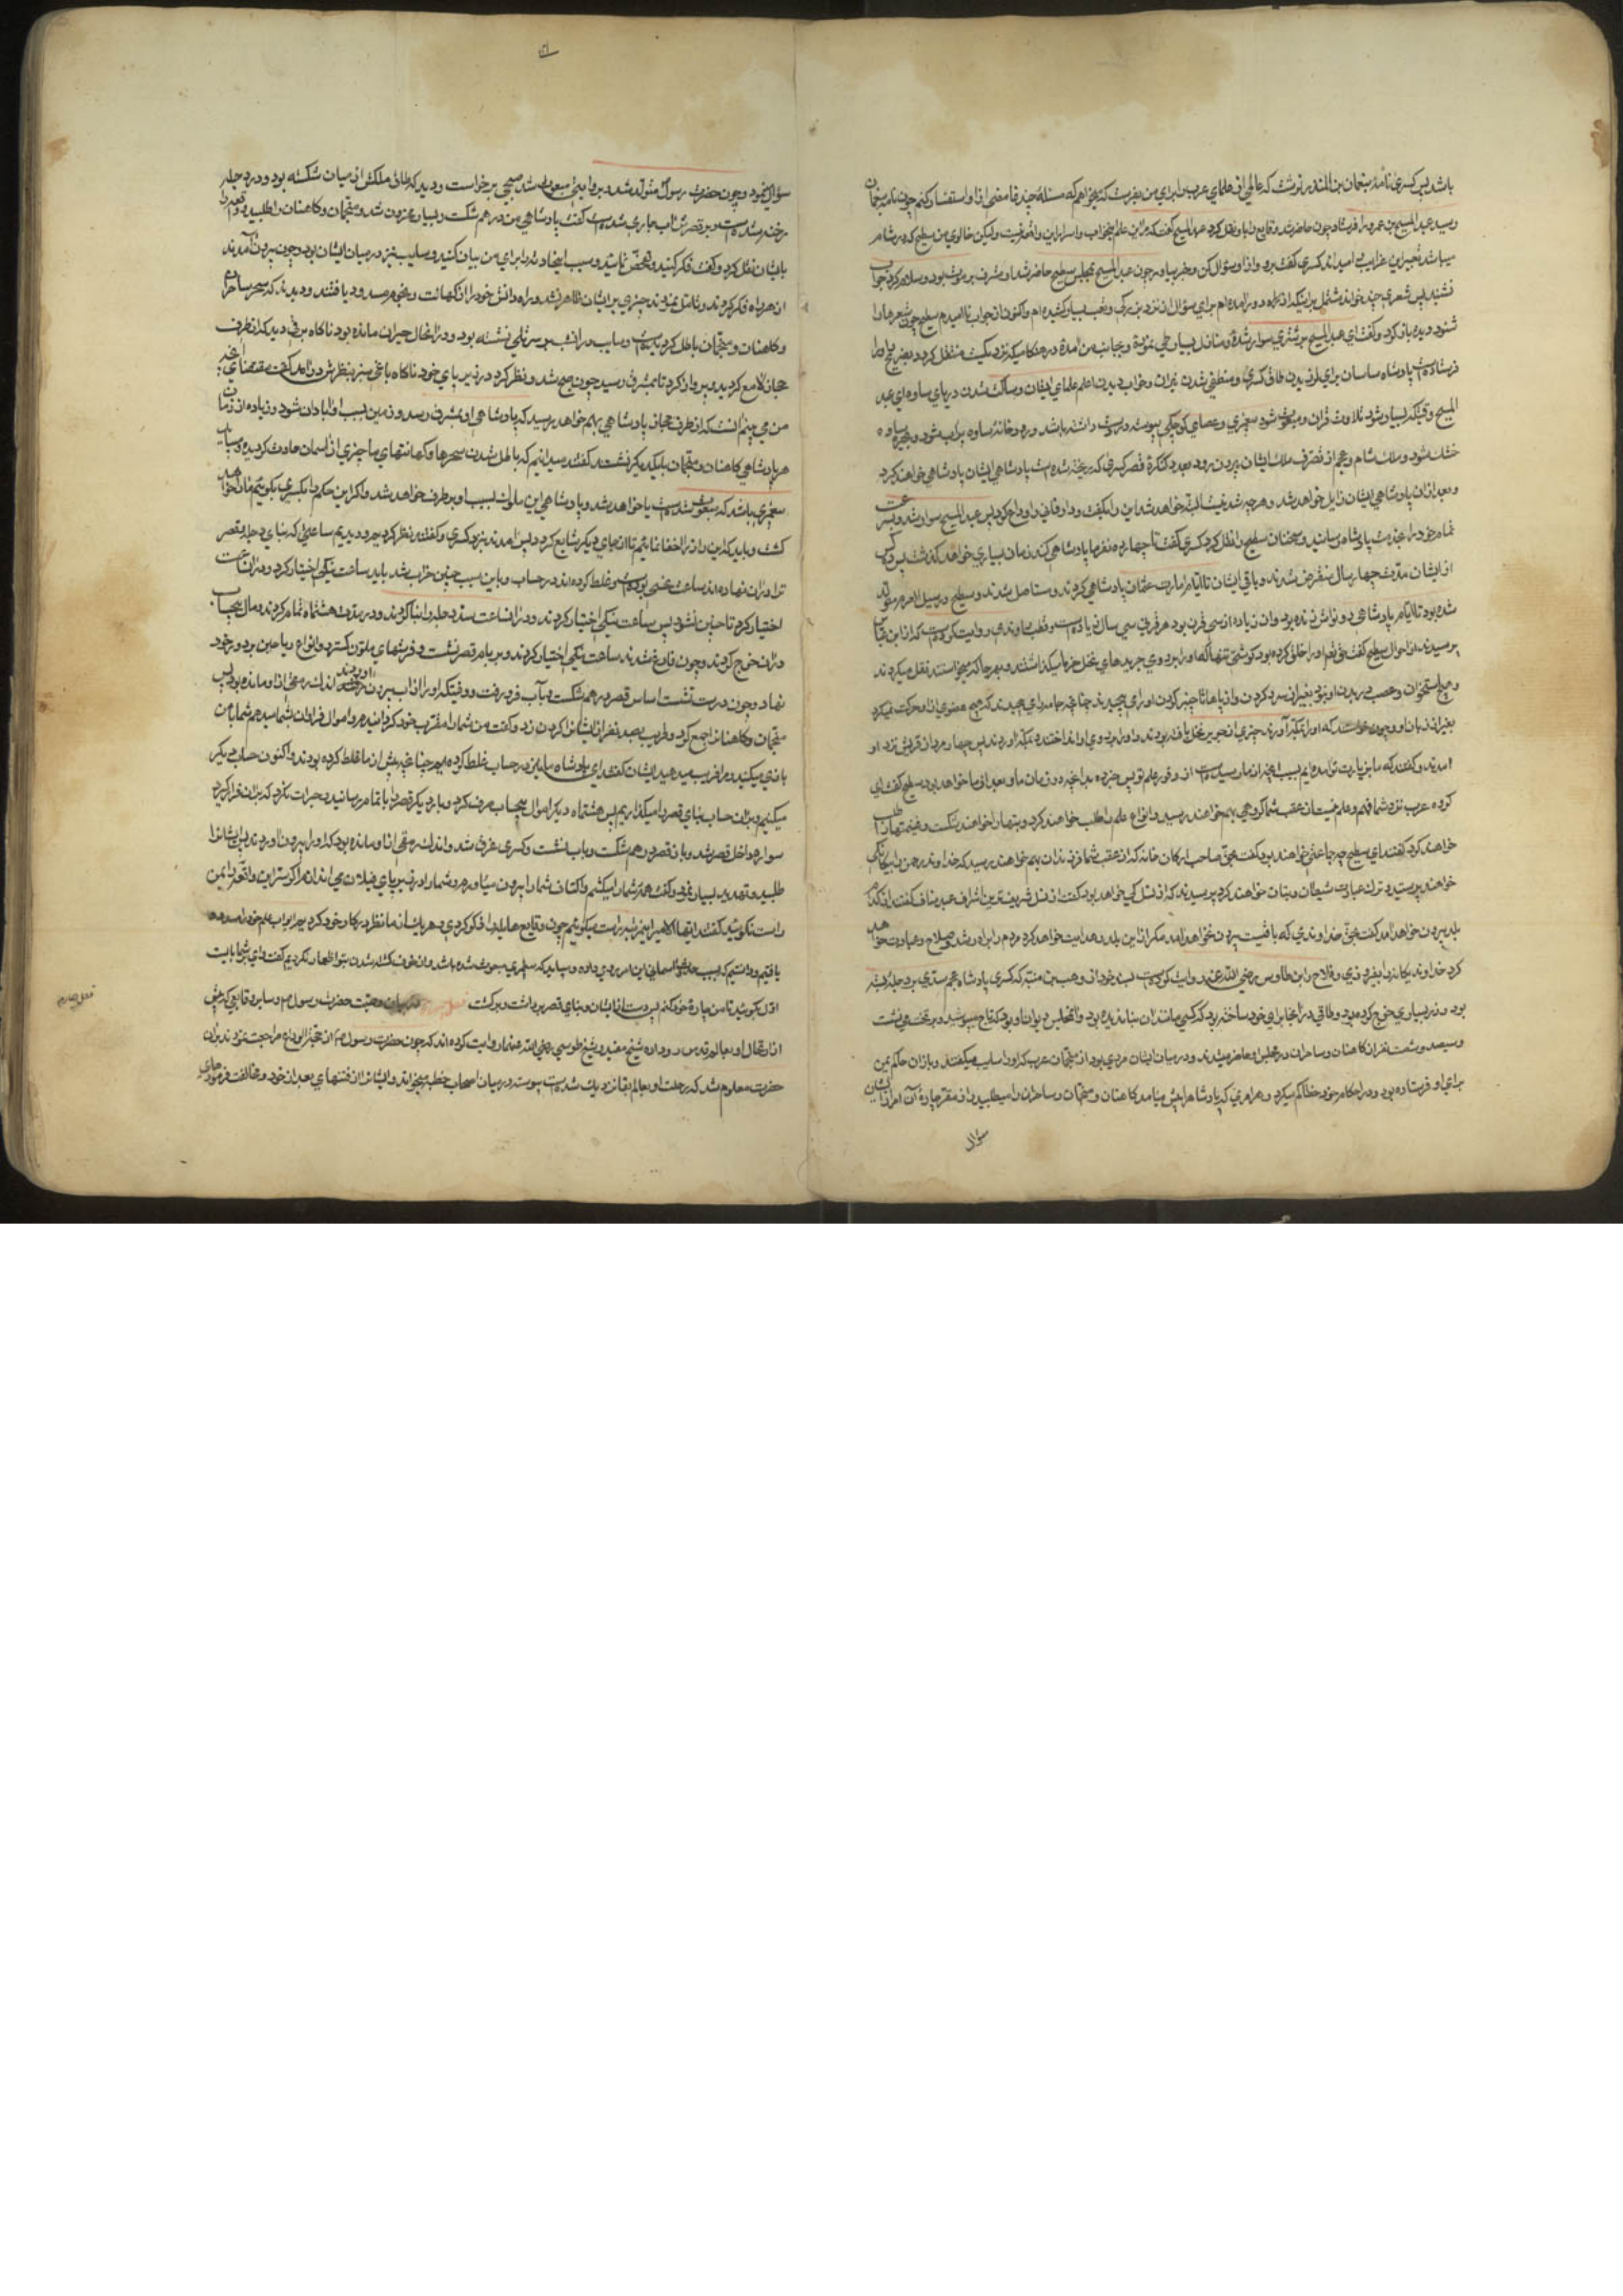 باشد پس کسری نامه بنعمان بن المنذر نوشت که عالمی از علمای عرب برای من بفرست که میخواهم که مسئله چند غامضی از او استفسار کنم چون نامه بنعمان
رسید عبد المسیح بن عمرو را فرستاد چون حاضر شد وقایع را باو نقل کرد عبد المسیح گفت که مرا این علم و اسرار این واقعه نیست ولیکن خالوی من سطیح که در شام
میباشد تعبیر این غرایب کسری گفت برو و از او سؤال کن و خبر بیاور چون عبد المسیح بمجلس سطیح حاضر شد او مشرف بر موت بود و سلام کرد جواب
نشنید پس شعری چند خواند مشتمل بر اینکه از راه دور آمده‌ام برای سؤال از نزد بزرگی و تعب بسیار کشیده‌ام و اکنون از جواب نا امیدم سطیح چون شعرها را
شنود دیده باز کرد و گفت ای عبد المسیح بر شتری سوار شدهٔ و منازل بسیار طی نمودهٔ و بجانب من آمدهٔ در هنگامیکه نزدیکست منتقل کردد بضریح و ترا
فرستاده‌است پادشاه ساسان برای لرزیدن طاق کسری و منطفی شدن نیران و خواب دیدن اعلم علمای ایشان و ساکت شدن دریای ساوه ای عبد
المسیح وقتیکه بسیار شود تلاوت قرآن و مبعوث شود پیغمبری و عصای کوچکی پیوسته در دست داشته باشد و رودخانه ساوه پر آب شود و بحیره ساوه
خشک شود و ملک شام و عجم از تصرف ملک ایشان بیرون رود بعدد کنکرهٔ قصر کسری که ریخته شده است پادشاهی ایشان پادشاهی خواهند کرد
و بعد از آن پادشاهی ایشان زایل خواهد شد و هر چه شدنیست البته خواهد شد این را بگفت و دار فانی را وداع کرد پس عبد المسیح سوار شد و بسرعت
تمام خود را بخدمت پادشاه رسانید و سخنان سطیح را نقل کرد کسری گفت تا چهارده نفر ما پادشاهی کند زمان بسیاری خواهد گذشت پس ده کس
از ایشان مدت چهار سال منقرض شدند و باقی ایشان تا ایام امارت عثمان پادشاهی کردند و مستاصل شدند و سطیح در سیل العرم متولد
شده بود تا ایام پادشاهی ذو نواس زنده بود و آن زیاده از سی قرن بود هر قرنی سی سال یا زیاده‌است و قطب راوندی روایت کرده‌است که از ابن عباس
پرسیدند از احوال سطیح گفت حق تعالی او را خلق کرده بود گوشتی تنها که او را بر روی جریدهای نخل خرما میگذاشتند و بهر جا که میخواستند نقل میکردند
و هیچ استخوان و عصب در بدن او نبود بغیر از سر و گردن و از پاها تا چنبر گردن او را می پیچیدند چنانچه جامه را می پیچند که هیچ عضوی از او حرکت نمیکرد
بغیر از زبان او و چون میخواستند که او را بمکه آورند چیزی از جرید نخل بافته بودند و او را بر روی او انداختند بمکه آوردند پس چهار مرد از قریش نزد او
آمدند و گفتند که ما بزیارت تو آمده‌ایم بسبب آنچه از تو بما رسیده‌است از وفور علم تو پس خبر ده ما را بآنچه در زمان ما و بعد از ما خواهد بود سطیح گفت ای
گروه عرب نزد شما فهم و علم نیست از عقب شما گروهی بهم خواهند رسید و انواع علم را طلب خواهند کرد و بتها را خواهند شکست و غنیمتها را طلب
خواهند کرد گفتند ای سطیح چه جماعتی خواهند بود گفت بحق صاحب ارکان خانه که از عقب شما فرزندان بهم خواهند رسید که خداوند رحمن را بیگانگی
خواهند پرستید و ترک عبادت شیطان و بتان خواهند کرد پرسیدند که از نسل کی خواهد بود گفت از نسل شریف‌ترین اشراف عبد مناف گفتند از کدام
بلد بیرون خواهد آمد گفت بحق خداوندی که باقیست بیرون نخواهد آمد مگر از این بلد و هدایت خواهد کرد مردم را براه رشد و صلاح و عبادت خواهد
کرد خداوند یکانه را بفردی و فلاح و ابن طاوس رضی الله عنه روایت کرده‌است بسند خود از وهب بن منبه که کسری پادشاه عجم سدی بر دجله بسته
بود و زر بسیاری خرج کرده بود و طاقی در آنجا برای خود ساخته بود که کسی مانند آن بنا ندیده بود و آن مجلس دیوان او بود که تاج میپوشید و بر تخت می نشست
و سیصد و شصت نفر از کاهنان و ساحران و در مجلس او حاضر میشدند و در میان ایشان مردی بود از منجمان عرب که او را سایب میگفتند و بازان حاکم یمن
برای او فرستاده بود و در احکام خود خطا کم میکرد و هر امری که پادشاه را پیش میامد کاهنان و منجمان و ساحران را میطلبید و از مفر چارهٔ آن امر از ایشان
سؤال
سؤال مینمود و چون حضرت رسول متولد شد و بروایتی مبعوث شد صبحی برخاست و دید که طاق ملکش از میان شکسته بود و در دجله
رخنه شده است و بر قصرش آب جاری شده است گفت پادشاهی من در هم شکست و بسیار محزون شد و منجمان و کاهنان را طلبید و واقعه را
بایشان نقل کرد و گفت فکر کنید و تفحص نمایید و سبب این حادثه را برای من بیان کنید و سایب نیز در میان ایشان بود و چون بیرون آمدند
از هر راه فکر کردند و تامل نمودند چیزی بر ایشان ظاهر نشد و راه دانش خود را از کهانت و نجوم مسدود یافتند و دیدند که سحر ساحران
و کاهنان و منجمان باطل گردیده‌است و سایب در آنشب بر سر تلی نشسته بود و در آنحال حیران مانده بود ناگاه برقی دید که از طرف
حجاز لامع گردید و پرواز کرد تا بمشرق رسید چون صبح شد و نظر کرد در زیر پای خود ناگاه باغی سبز بنظرش در آمد گفت مقتضای آنچه
من می‌بینم آنست که از طرف حجاز پادشاهی بهم خواهد رسید که پادشاهی او بمشرق رسد و زمین بسبب او آبادان شود زیاده از زمان
هر پادشاهی کاهنان و منجمان با یکدیگر نشستند گفتند میدانیم که باطل شدن سحرها و کهانتهای ما چیزی از آسمان حادث گردیده و میباید
پیغمبری باشد که مبعوث شده‌است یا خواهد شد و پادشاهی این ملوک بسبب او بر طرف خواهد شد و اگر این حکم را بکسری بگوئیم ما را خواهد
کشت و باید که این راز را اخفا نمائیم تا از جای دیگر شایع گردد پس آمدند بنزد کسری و گفتند نظر کردیم و دیدیم ساعتی که بنای دجله و قصر
ترا در آن نهاده‌اند ساعت نحسی بوده‌است و غلط کرده‌اند در حساب و باین سبب چنین خراب شد باید ساعت نیکی اختیار کرد و در آن ساعت
اختیار کرد تا چنین نشود پس ساعت نیکی اختیار کردند و در آن ساعت سد دجله را بنا کردند و در مدت هشت ماه تمام کردند و مال بیحساب
در آن خرج کردند و چون فارغ شدند ساعت نیکی اختیار کردند و بر بام قصر نشست و فرشهای ملون گسترد و انواع ریاحین بر دور خود
نهاد و چون درست نشست اساس قصر در هم شکست و بآب فرو رفت و وقتیکه او را از آب بیرون آوردند اندک رمقی از او مانده بود پس
منجمان و کاهنان را جمع کرد و قریب بصد نفر از ایشان را گردن زد و گفت من شما را مقرب خود گردانیدم و اموال فراوان بشما میدهم شما با من
بازی میکنید و مرا فریب میدهید ایشان گفتند ای پادشاه ما نیز در حساب غلط کرده‌ایم چنانچه پیش از ما غلط کرده بودند و اکنون حساب دیگر
میکنیم و بر آن حساب بنای قصر را میگذاریم پس هشت ماه دیگر اموال بیحساب صرف کرد و بار دیگر قصر را باتمام رسانید و جرات نکرد که بر آن قرار گیرد
سواره داخل قصر شد و باز قصر در هم شکست و باب نشست و کسری غرق شد و اندک رمقی از او مانده بود که او را بیرون آوردند پس ایشانرا
طلبید و تهدید بسیار نمود و گفت همه شما را میکشم و کتف شما را بیرون میاورم و شما را در زیر پای فیلان می‌اندازم اگر سر این واقعه را بمن
راست نگوئید گفتند ایها الامیر این مرتبه راست میگوئیم چون وقایع
یافتیم و دانستیم که بسبب حادثه آسمانی این امر روی داده و میباید که پیغمبری مبعوث شده باشد و از خوف کشته شدن بتو اظهار نکردیم گفت وای بر شما بایست
اول بگوئید تا من چارهٔ خود کنم پس دست از ایشان و بنای قصر برداشت و برگشت فصل در بیان وصیت حضرت رسول ص و سایر وقایعی که پیش
از ارتحال او بعالم قدس رو داده شیخ مفید و شیخ طوسی رضی الله عنهما روایت کرده‌اند که چون حضرت رسول ص از حجة الوداع مراجعت نمودند بر آن
حضرت معلوم شد که رحلت او بعالم بقا نزدیک شده‌است پیوسته در میان اصحاب خطبه میخواند و ایشانرا از فتنهای بعد از خود و مخالفت فرمودهای
فصل چهارم